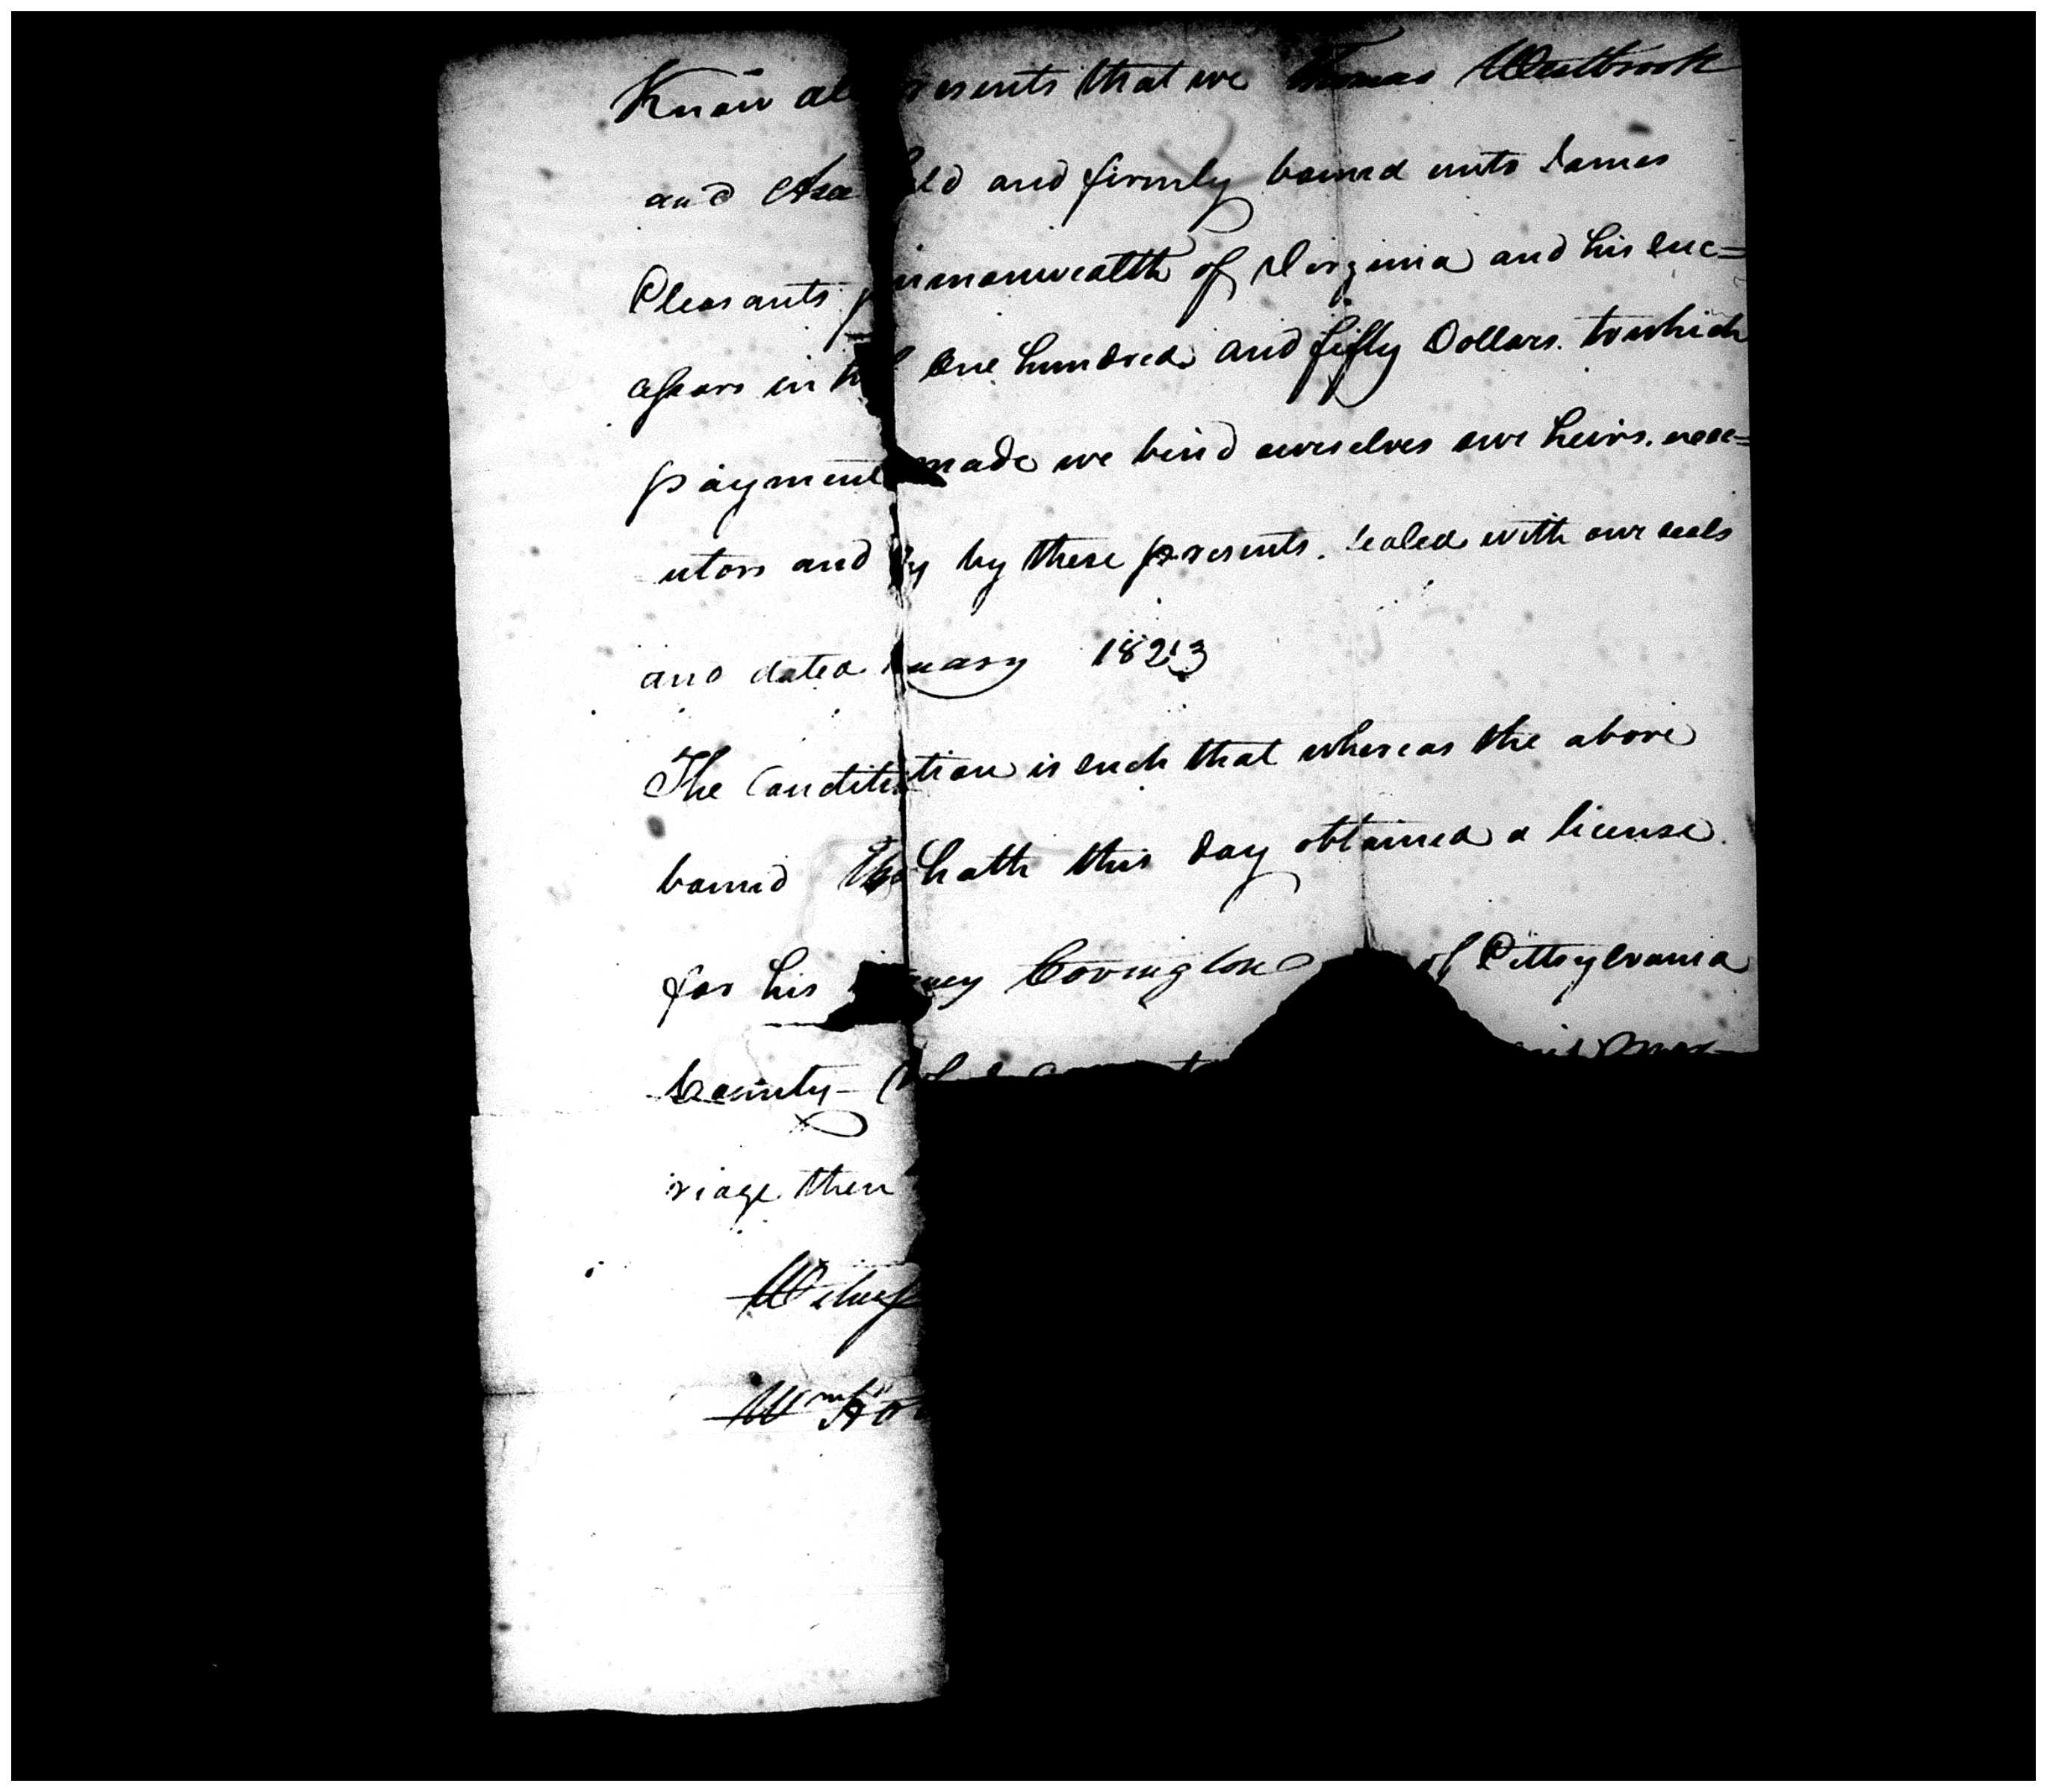 Know al resents that we Thomas Westbrook
and Asa ld and firmly bound unto James
Pleasants mmonwealth of Virginia and his suc=
cessors in th One hundred and fifty Dollars. to which
payment made we bind ourselves our heirs. exec=
utors and ly by these presents. Sealed with our seals
and dated nuary 1823
The Condit tion is such that whereas the above
bound Tho hath this day obtained a license
for his ncy Covington of Pittsylvania
County
riage then
Witness
Wm